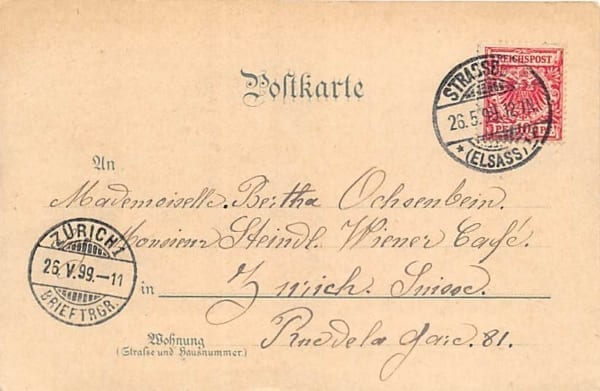 Postkarte
REICHSPOST
10
STRASSB
26.5.99.12
* (ELSASS)
An
Mademoiselle. Bertha Ochsenbein.
Monsieur Steindl. Wiener Café.
in Zurich. Suisse.
Rue de la Gare. 81.
Wohnung
(Straße und Hausnummer.)
ZÜRICH 1
26.V.99.–11
BRIEFTRGR.